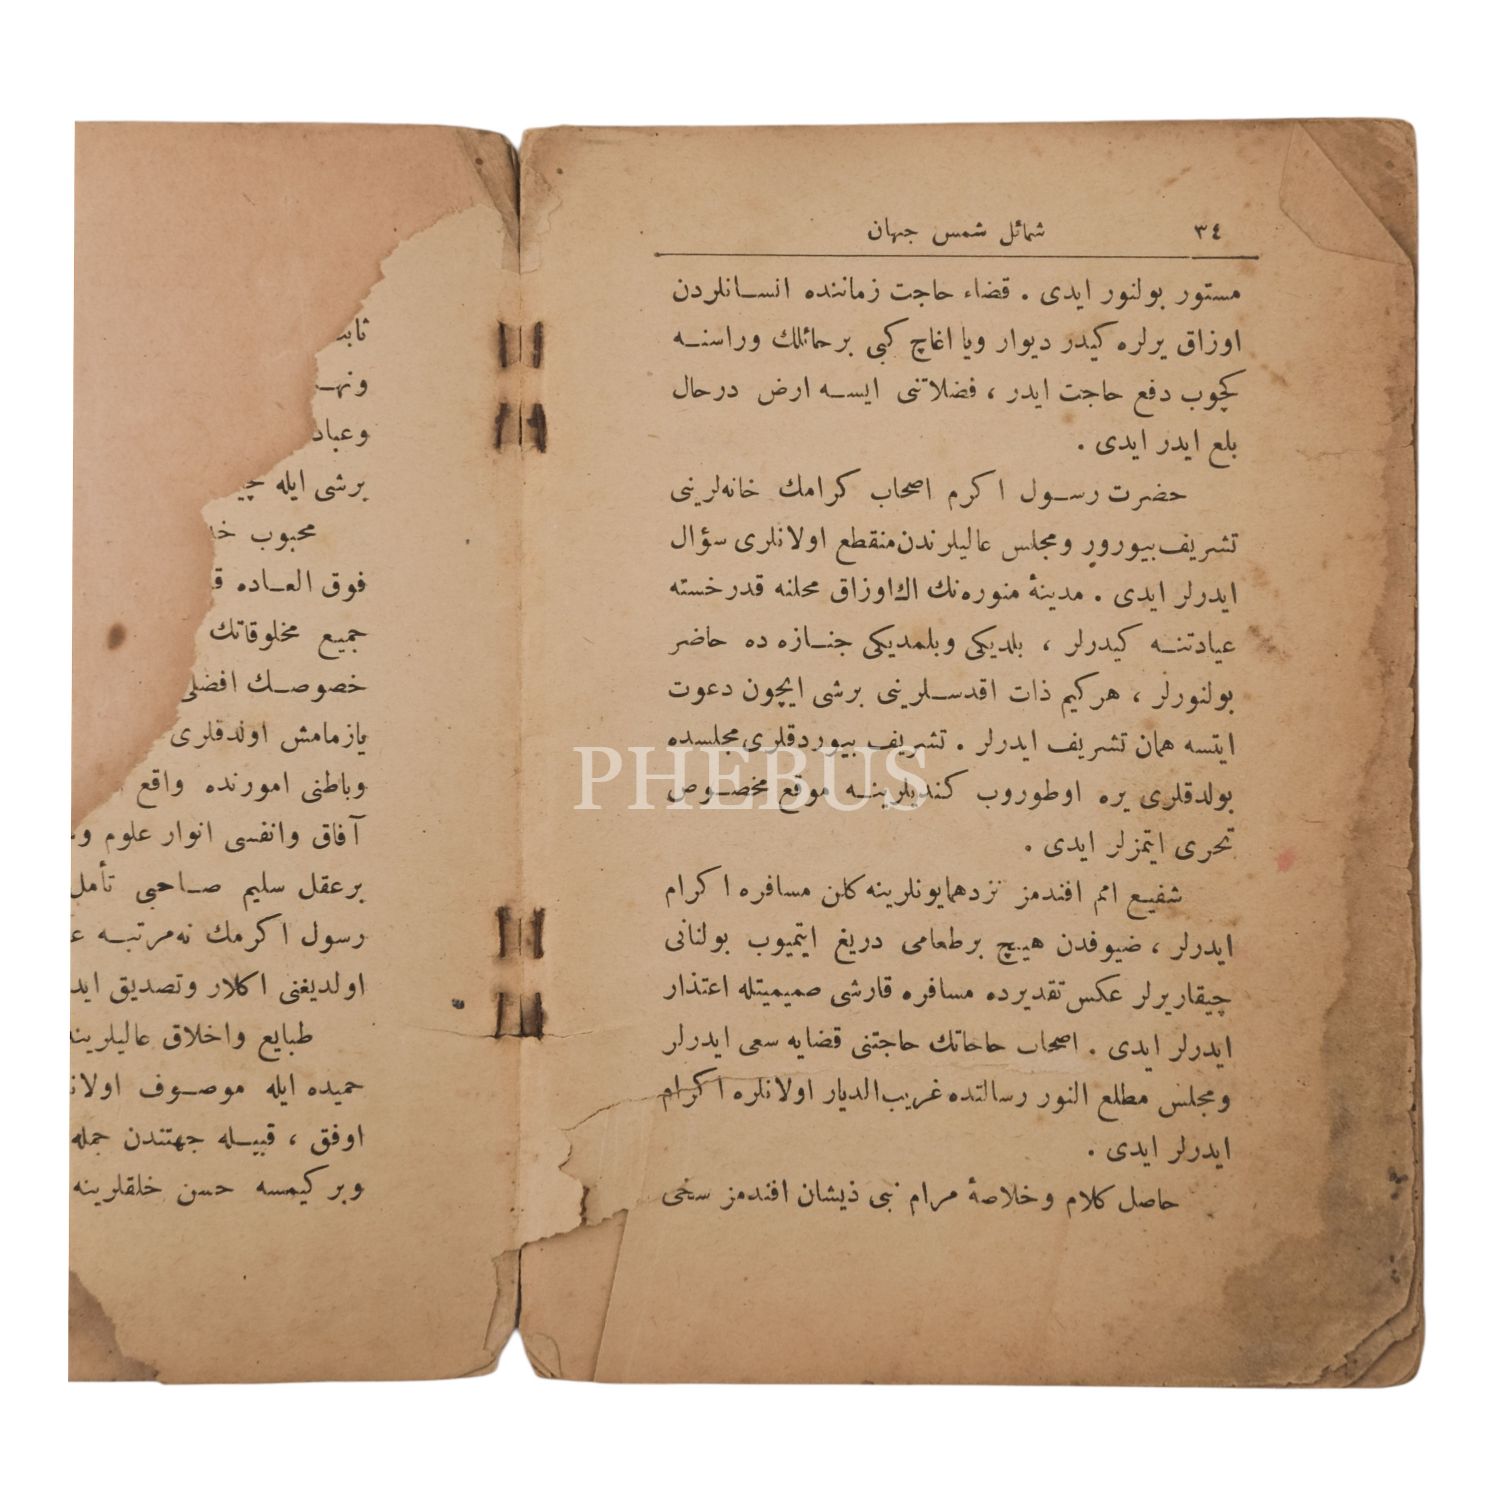 ٣٤
شمائل شمس جهان
مستور بولنور ايدى . قضاء حاجت زماننده انسانلردن
اوزاق يرلره كيدر ديوار ويا اغاج كبى برحائلك وراسنه
كچوب دفع حاجت ايدر ، فضلاتنى ايسه ارض درحال
بلع ايدر ايدى .
حضرت رسول اكرم اصحاب كرامك خانه‌لرينى
تشريف بيورور ومجلس عاليلرندن منقطع اولانلرى سؤال
ايدرلر ايدى . مدينهٔ منوره‌نك اك اوزاق محلنه قدر خسته
عيادتنه كيدرلر ، بلديكى وبلمديكى جنازه ده حاضر
بولنورلر ، هركيم ذات اقدسلرينى برشى ايچون دعوت
ايتسه همان تشريف ايدرلر . تشريف بيوردقلرى مجلسده
بولدقلرى يره اوطوروب كنديلرينه موقع مخصوص
تحرى ايتمزلر ايدى .
شفيع امم افندمز نزد همايونلرينه كلن مسافره اكرام
ايدرلر ، ضيوفدن هيچ برطعامى دريغ ايتميوب بولنانى
چيقاريرلر عكس تقديرده مسافره قارشى صميميتله اعتذار
ايدرلر ايدى . اصحاب حاجاتك حاجتنى قضايه سعى ايدرلر
ومجلس مطلع النور رسالتده غريب‌الديار اولانلره اكرام
ايدرلر ايدى .
حاصل كلام وخلاصهٔ مرام نبى ذيشان افندمز سخى
وعباد
برشى ايله
محبوب
فوق العاده
جميع مخلوقاتك
خصوصك افضلى
يازمامش اولدقلرى
وباطنى امورنده واقع
آفاق وانفسى انوار علوم
برعقل سليم صاحبى تأمل
رسول اكرمك نه‌مرتبه
اولديغنى اكلار وتصديق
طبايع واخلاق عاليلرينه
حميده ايله موصوف
اوفق ، قبيله جهتندن جمله
وبر كيمسه حسن خلقلرينه
PHEBUS